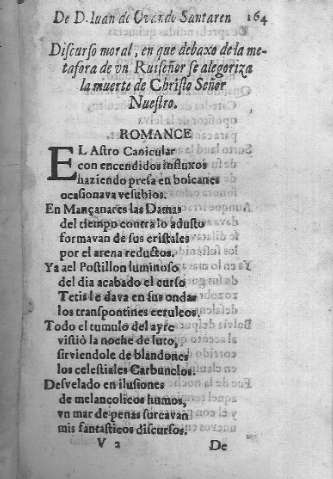 De D. Iuan de Ovando Santaren 164
Discurso moral, en que debaxo de la me-
tafora de vn Ruiseñor se alegoriza
la muerte de Christo Señor
Nuestro.
ROMANCE
EL Astro Canicular
con encendidos influxos
haziendo presa en bolcanes
ocasionava vesubios.
En Mançanares las Damas
del tiempo contra lo adusto
formavan de sus cristales
por el arena reductos.
Ya ael Postillon luminoso
del dia acabado el curso
Tetis le dava en sus ondas
los transpontines ceruleos.
Todo el tumulo del ayre
vistiò la noche de luto,
sirviendole de blandones
los celestiales Carbunclos.
Desvelado en ilusiones
de melancolicos humos,
vn mar de penas surcavan
mis fantasticos discursos.
V 2 De